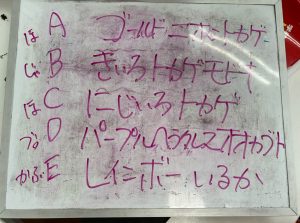 ほ A ゴールドニオイトカゲ
じゅ B きいろトカゲモドキ
ほ C にじいろトカゲ
ブ D パープルヘラクレスオオカブト
かぶ E レインボーいるか